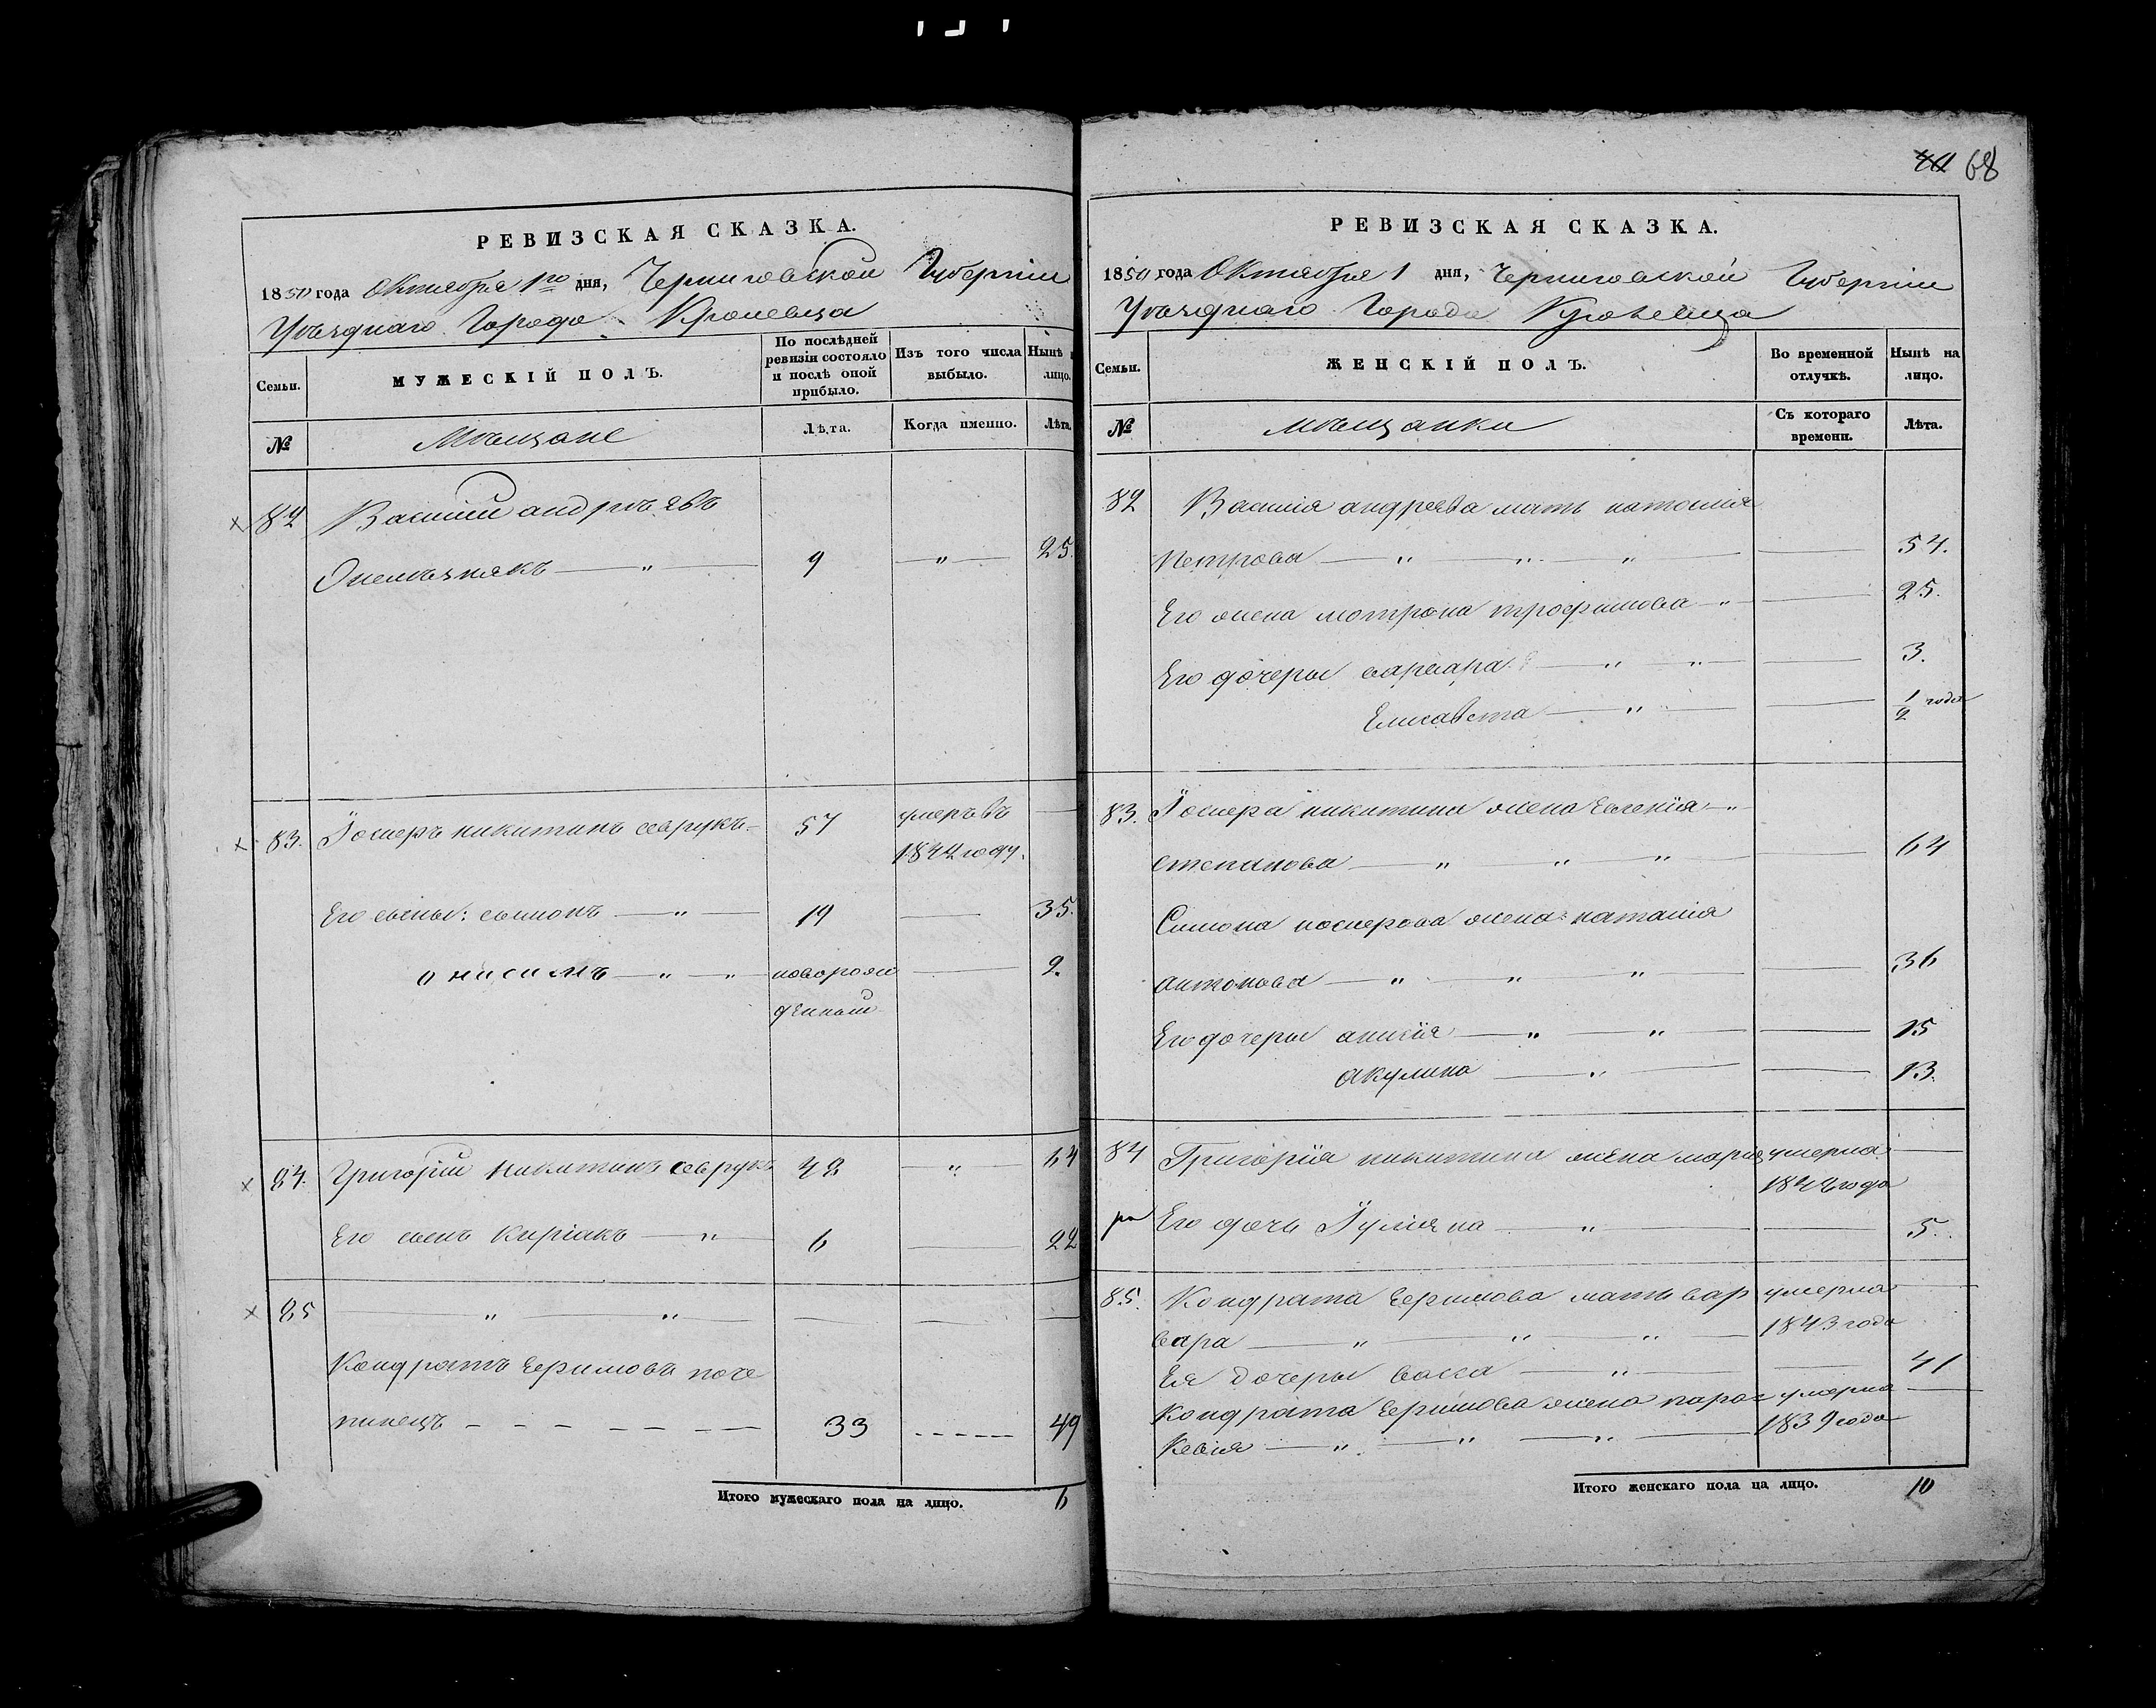 РЕВИЗСКАЯ СКАЗКА.
1850 года Октября 1го дня, Черниговской Губернии
Уѣзднаго Города Кролевца
Семьи.
МУЖЕСКІЙ ПОЛЪ.
По послѣдней ревизіи состояло и послѣ оной прибыло.
Изъ того числа выбыло.
Нынѣ на лицо.
№
Мѣщане
Лѣта.
Когда именно.
Лѣта.
82 Василій андрѣевъ
9 25.
83. Іосиеръ никитинъ севрукъ 57 умеръ въ
1844 году.
Его сыны: симонъ 19 35.
онисимъ новорож 9.
денный
84. Григорій никитинъ севрукъ 48 64
Его сынъ Киріакъ 6 22
85
Кондратъ Еѳимовъ поче
пинецъ 33 49
Итого мужескаго пола на лицо. 6
68
РЕВИЗСКАЯ СКАЗКА.
1850 года Октября 1 дня, Черниговской Губернии
Уѣзднаго Города Кролевца
Семьи.
ЖЕНСКІЙ ПОЛЪ.
Во временной отлучкѣ.
Нынѣ на лицо.
№
мѣщанки
Съ котораго времени.
Лѣта.
82 Василія андреева мать наталія
Петрова 54.
Его жена мотрона трофимова 25.
Его дочеры варвара 3.
Елисавета 1/2 года
83. Іосиера никитина жена Евгенія
степанова 64
Симона иосиерова жена наталія
антонова 36
Его дочеры 15
акулина 13.
84 Григорія никитина жена марія умерла
1844 года
Его дочь Іуліяна 5.
85. Кондрата Еѳимова мать вар умерла
вара 1843 года
Ея дочеры васса 41
Кондрата Еѳимова жена парас умерла
кевія 1839 года
Итого женскаго пола на лицо. 10